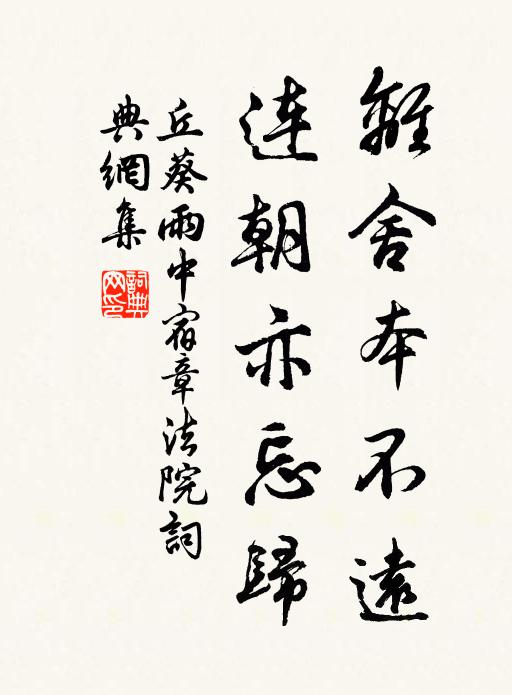 離舍本不遠
連朝亦忘歸
丘葵雨中宿章法院詞
典網集
詞典
網印